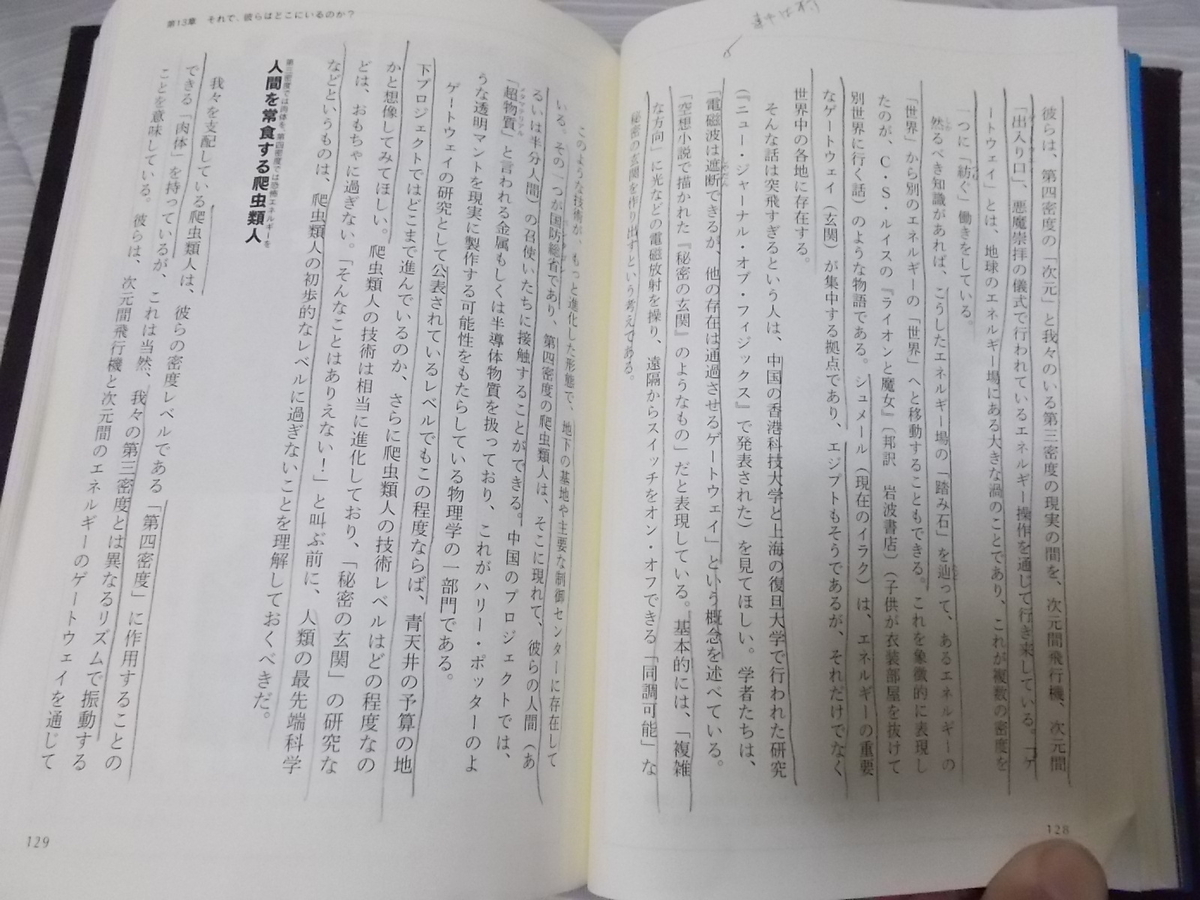 彼らは、第四密度の「次元」と我々のいる第三密度の現実の間を、次元間飛行機、次元間
「出入り口」、悪魔崇拝の儀式で行われているエネルギー操作を通じて行き来している。「ゲ
ートウェイ」とは、地球のエネルギー場にある大きな渦のことであり、これが複数の密度を
一つに「紡ぐ」働きをしている。
然るべき知識があれば、こうしたエネルギー場の「踏み石」を辿って、あるエネルギーの
「世界」から別のエネルギーの「世界」へと移動することもできる。これを象徴的に表現し
たのが、C・S・ルイスの『ライオンと魔女』（邦訳　岩波書店）（子供が衣装部屋を抜けて
別世界に行く話）のような物語である。シュメール（現在のイラク）は、エネルギーの重要
なゲートウェイ（玄関）が集中する拠点であり、エジプトもそうであるが、それだけでなく
世界中の各地に存在する。
そんな話は突飛すぎるという人は、中国の香港科技大学と上海の復旦大学で行われた研究
（『ニュー・ジャーナル・オブ・フィジックス』で発表された）を見てほしい。学者たちは、
「電磁波は遮断できるが、他の存在は通過させるゲートウェイ」という概念を述べている。
「空想小説で描かれた『秘密の玄関』のようなもの」だと表現している。基本的には、「複雑
な方向」に光などの電磁放射を操り、遠隔からスイッチをオン・オフできる「同調可能」な
秘密の玄関を作り出すという考えである。
128
第13章　それで、彼らはどこにいるのか？
このような技術が、もっと進化した形態で、地下の基地や主要な制御センターに存在して
いる。その一つが国防総省であり、第四密度の爬虫類人は、そこに現れて、彼らの人間（あ
るいは半分人間）の召使いたちに接触することができる。中国のプロジェクトでは、
「超物質」と言われる金属もしくは半導体物質を扱っており、これがハリー・ポッターのよ
うな透明マントを現実に製作する可能性をもたらしている物理学の一部門である。
ゲートウェイの研究として公表されているレベルでもこの程度ならば、青天井の予算の地
下プロジェクトではどこまで進んでいるのか、さらに爬虫類人の技術レベルはどの程度なの
かと想像してみてほしい。爬虫類人の技術は相当に進化しており、「秘密の玄関」の研究な
どは、おもちゃに過ぎない。「そんなことはありえない！」と叫ぶ前に、人類の最先端科学
などというものは、爬虫類人の初歩的なレベルに過ぎないことを理解しておくべきだ。
第三密度では肉体を、第四密度では恐怖エネルギーを
人間を常食する爬虫類人
我々を支配している爬虫類人は、彼らの密度レベルである「第四密度」に作用することの
できる「肉体」を持っているが、これは当然、我々の第三密度とは異なるリズムで振動する
ことを意味している。彼らは、次元間飛行機と次元間のエネルギーのゲートウェイを通じて
129